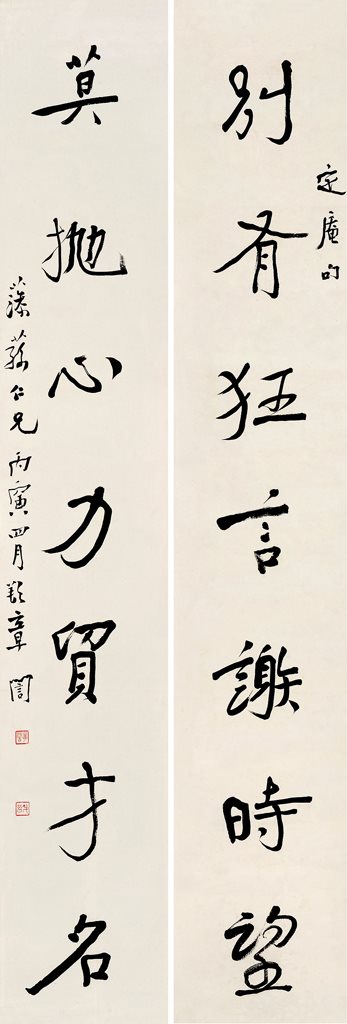 定庵句
別有狂言謝時望
莫拋心力貿才名
仁兄 丙寅四月 章誾